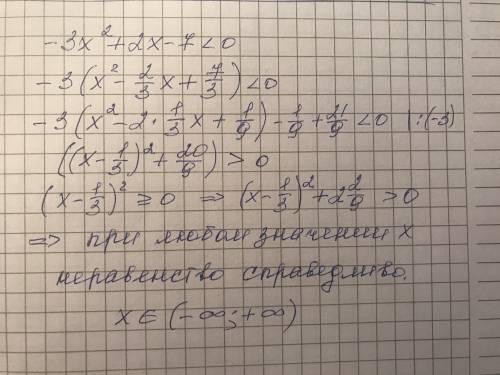 -3x² + 2x - 7 < 0
-3(x² - 2/3 x + 7/3) < 0
-3(x² - 2 · 1/3 x + 1/9) - 1/9 + 21/9 < 0 | : (-3)
((x - 1/3)² + 20/9) > 0
(x - 1/3)² ≥ 0 ⇒ (x - 1/3)² + 2 2/9 > 0
⇒ при любом значении x
неравенство справедливо.
x ∈ (-∞; +∞)